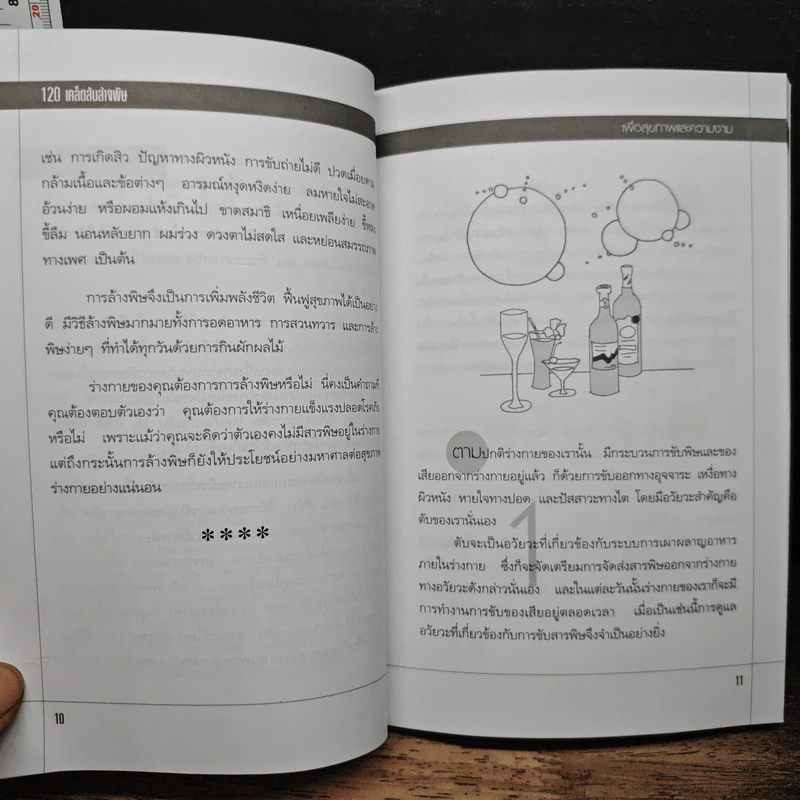 120 เคล็ดลับล้างพิษ
เช่น การเกิดสิว ปัญหาทางผิวหนัง การขับถ่ายไม่ดี ปวดเมื่อยตาม
กล้ามเนื้อและข้อต่างๆ อารมณ์หงุดหงิดง่าย ลมหายใจไม่สะอาด
อ้วนง่าย หรือผอมแห้งเกินไป ขาดสมาธิ เหนื่อยเพลียง่าย
ขี้ลืม นอนหลับยาก ผมร่วง ดวงตาไม่สดใส และหย่อนสมรรถภาพ
ทางเพศ เป็นต้น
การล้างพิษจึงเป็นการเพิ่มพลังชีวิต ฟื้นฟูสุขภาพได้เป็นอย่าง
ดี มีวิธีล้างพิษมากมายทั้งการอดอาหาร การสวนทวาร และการล้าง
พิษง่ายๆ ที่ทำได้ทุกวันด้วยการกินผักผลไม้
ร่างกายของคุณต้องการการล้างพิษหรือไม่ นี่คงเป็นคำถามที่
คุณต้องตอบตัวเองว่า คุณต้องการให้ร่างกายแข็งแรงปลอดโรคภัย
หรือไม่ เพราะแม้ว่าคุณจะคิดว่าตัวเองคงไม่มีสารพิษอยู่ในร่างกาย
แต่ถึงกระนั้นการล้างพิษก็ยังให้ประโยชน์อย่างมหาศาลต่อสุขภาพ
ร่างกายอย่างแน่นอน
****
10
เพื่อสุขภาพและความงาม
ตามปกติร่างกายของเรานั้น มีกระบวนการขับพิษและของ
เสียออกจากร่างกายอยู่แล้ว ก็ด้วยการขับออกทางอุจจาระ เหงื่อทาง
ผิวหนัง หายใจทางปอด และปัสสาวะทางไต โดยมีอวัยวะสำคัญคือ
ตับของเรานั่นเอง
1
ตับจะเป็นอวัยวะที่เกี่ยวข้องกับระบบการเผาผลาญอาหาร
ภายในร่างกาย ซึ่งก็จะจัดเตรียมการจัดส่งสารพิษออกจากร่างกาย
ทางอวัยวะดังกล่าวนั่นเอง และในแต่ละวันนั้นร่างกายของเราก็จะมี
การทำงานการขับของเสียอยู่ตลอดเวลา เมื่อเป็นเช่นนี้การดูแล
อวัยวะที่เกี่ยวข้องกับการขับสารพิษจึงจำเป็นอย่างยิ่ง
11